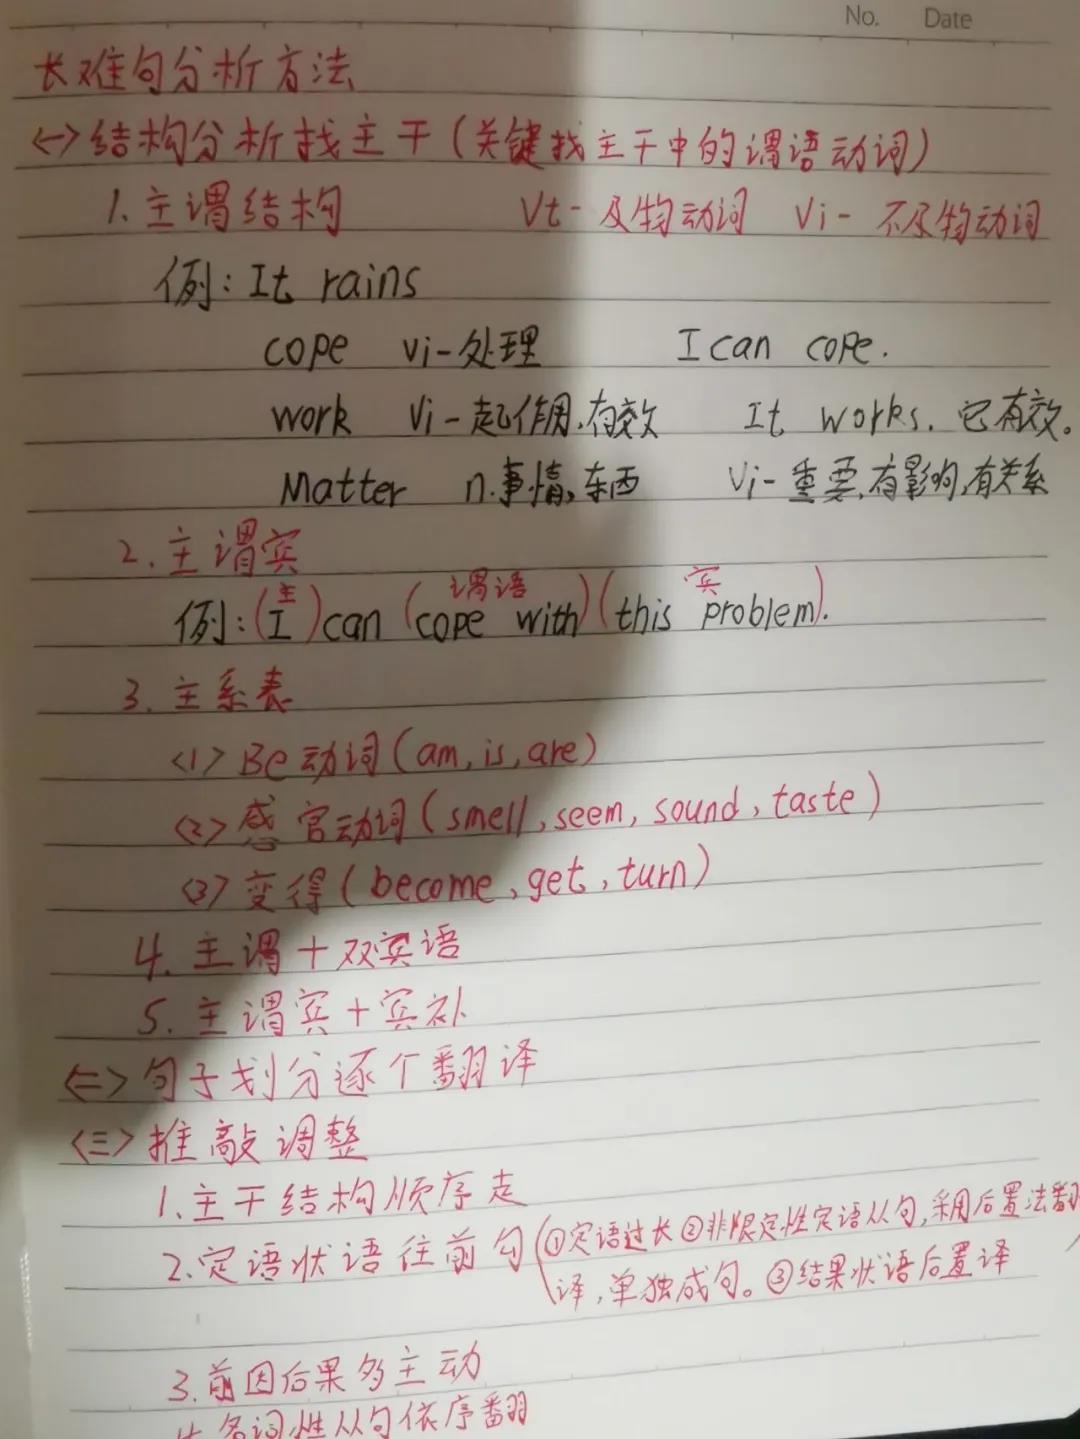 No. Date
长难句分析方法
<一>结构分析找主干(关键找主干中的谓语动词)
1.主谓结构 Vt-及物动词 Vi-不及物动词
例:It rains
cope vi-处理 I can cope.
work Vi-起作用,有效 It works. 它有效。
Matter n.事情,东西 Vi-重要,有影响,有关系
2.主谓宾
主 谓语 宾
例:(I)can (cope with)(this problem).
3.主系表
<1>Be动词(am,is,are)
<2>感官动词(smell,seem,sound,taste)
<3>变得(become,get,turn)
4.主谓+双宾语
5.主谓宾+宾补
<二>句子划分逐个翻译
<三>推敲调整
1.主干结构顺序走
2.定语状语往前勾(①定语过长②非限定性定语从句,采用后置法翻
译,单独成句。③结果状语后置译
3.前因后果多主动
4.名词性从句依序翻